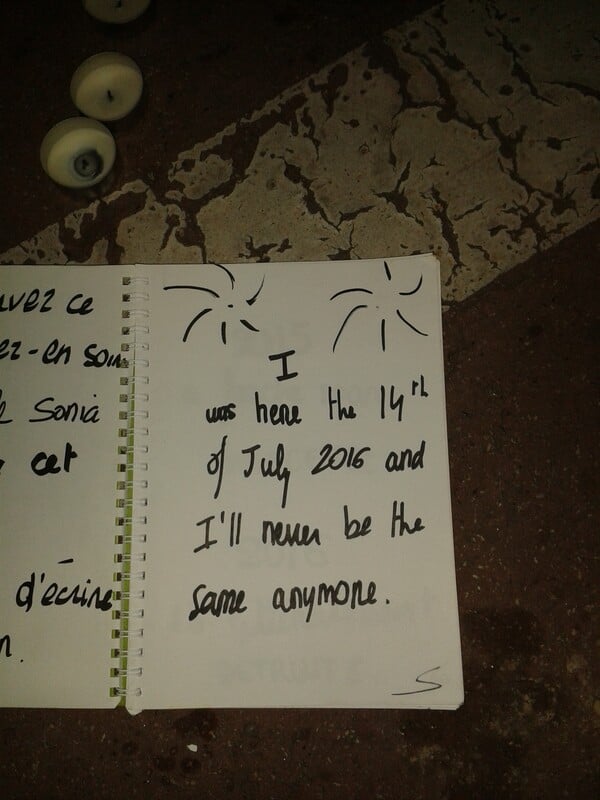 uvez ce
ez-en soin
Sonia
cet
d'écrire
n.
I
was here the 14th
of July 2016 and
I'll never be the
same anymore.
S